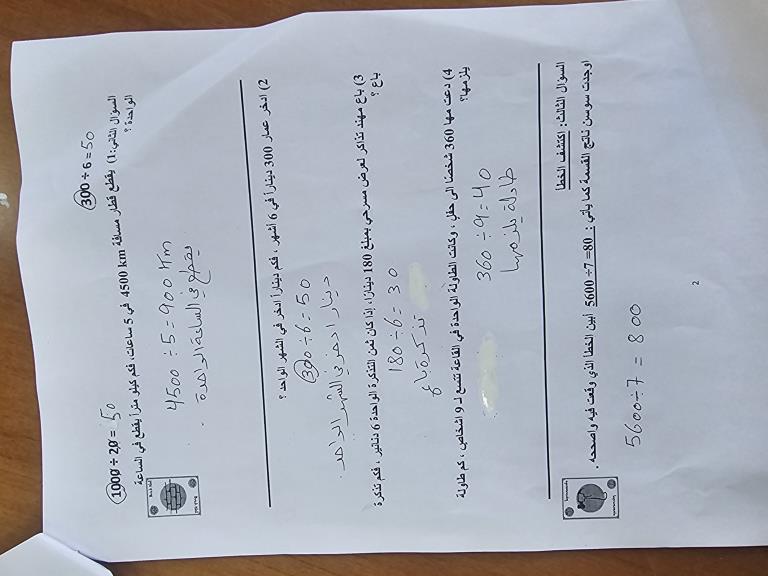 1000 ÷ 20 = 50
300 ÷ 6 = 50
السؤال الثاني: 1) يقطع قطار مسافة 4500 km في 5 ساعات، فكم كيلو متراً يقطع في الساعة
الواحدة ؟
4500 ÷ 5 = 900 km
يقطع في الساعة الواحدة .
2) ادخر عمار 300 ديناراً في 6 أشهر ، فكم ديناراً ادخر في الشهر الواحد ؟
300 ÷ 6 = 50
دينار ادخر في الشهر الواحد .
3) باع مهند تذاكر لعرض مسرحي بمبلغ 180 ديناراً، إذا كان ثمن التذكرة الواحدة 6 دنانير ، فكم تذكرة
باع ؟
180 ÷ 6 = 30
تذكرة باع
4) دعت مها 360 شخصاً الى حفل ، وكانت الطاولة الواحدة في القاعة تتسع لـ 9 اشخاص ، كم طاولة
يلزمها؟
360 ÷ 9 = 40
طاولة يلزمها
السؤال الثالث: اكتشف الخطأ
اوجدت سوسن ناتج القسمة كما يأتي : 5600 ÷ 7 = 80 أبين الخطأ الذي وقعت فيه واصححه .
5600 ÷ 7 = 800
2